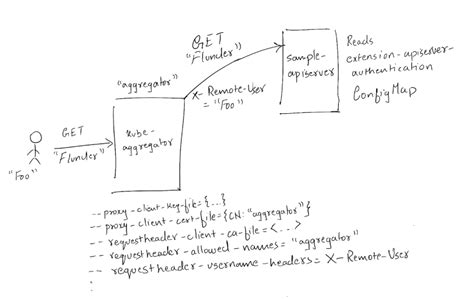 GET
"Flunder"
"aggregator"
X-Remote-User
= "Foo"
sample-
apiserver
Reads
extension-apiserver-
authentication
ConfigMap
GET
"Flunder"
"Foo"
kube-
aggregator
-- proxy-client-key-file={...}
-- proxy-client-cert-file={CN: "aggregator"}
-- requestheader-client-ca-file=<...>
-- requestheader-allowed-names="aggregator"
-- requestheader-username-headers=X-Remote-User
: